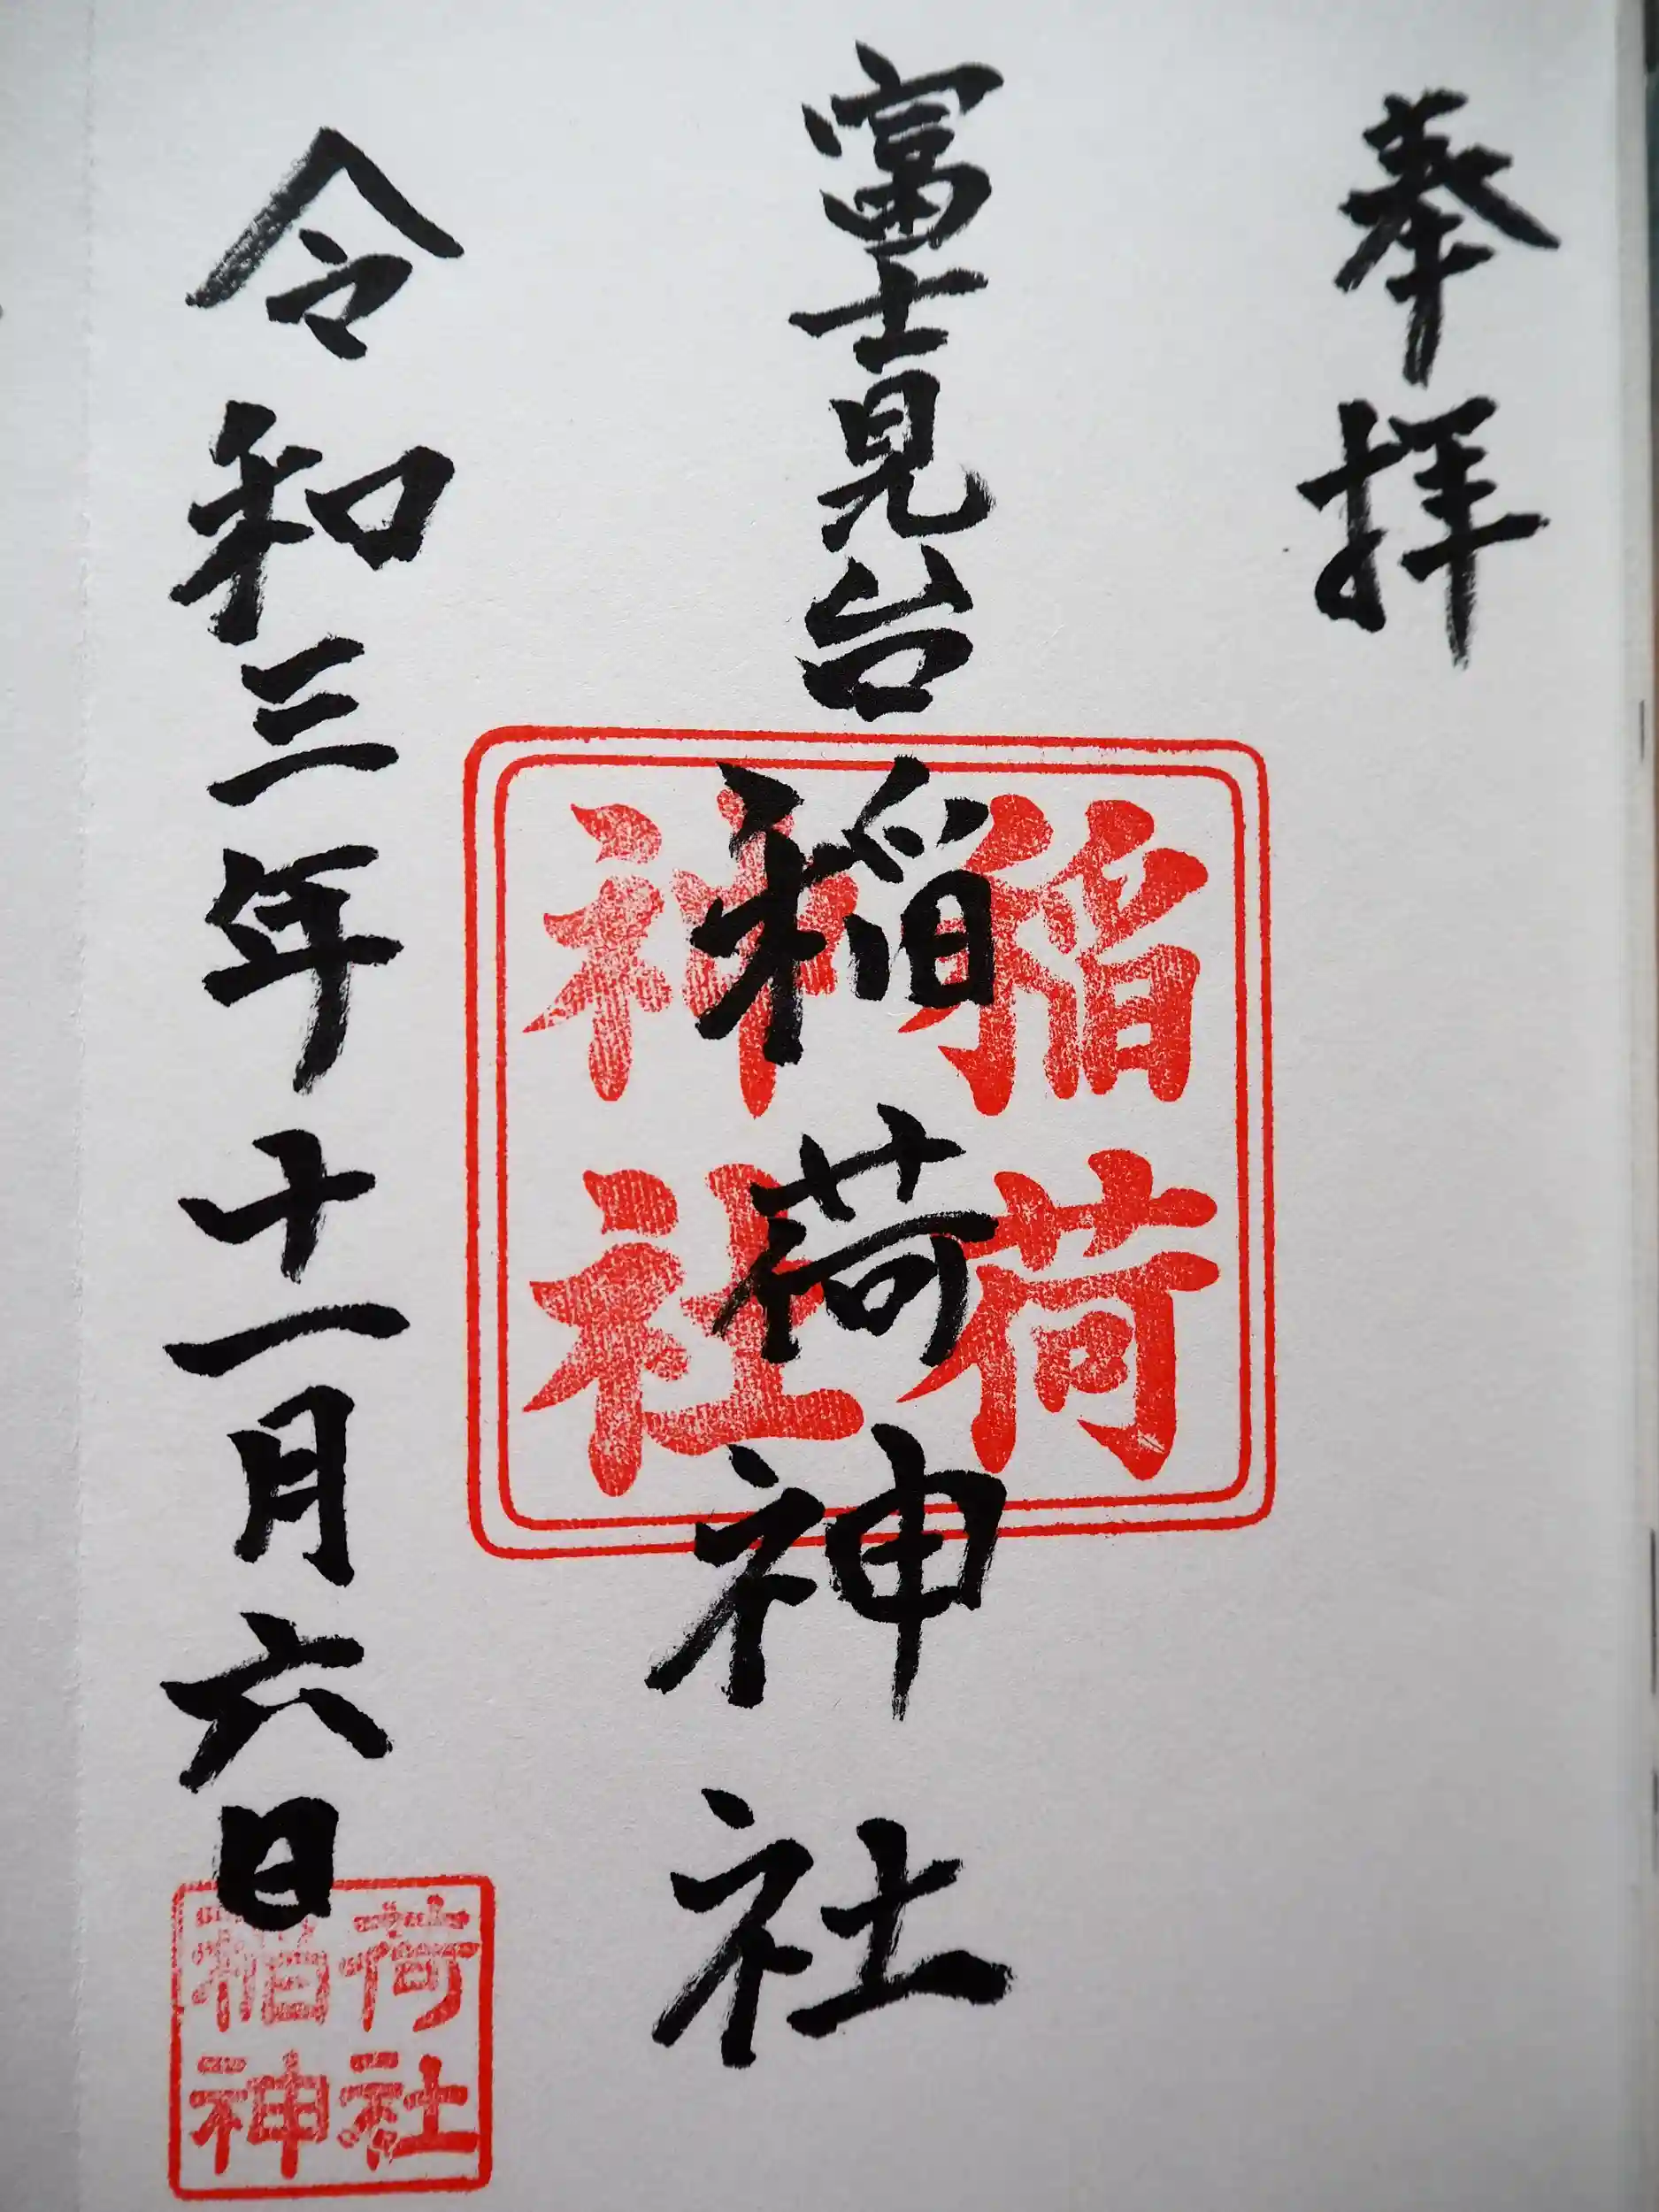 奉拝
富士見台稲荷神社
稲荷
神社
令和三年十一月六日
稲荷
神社